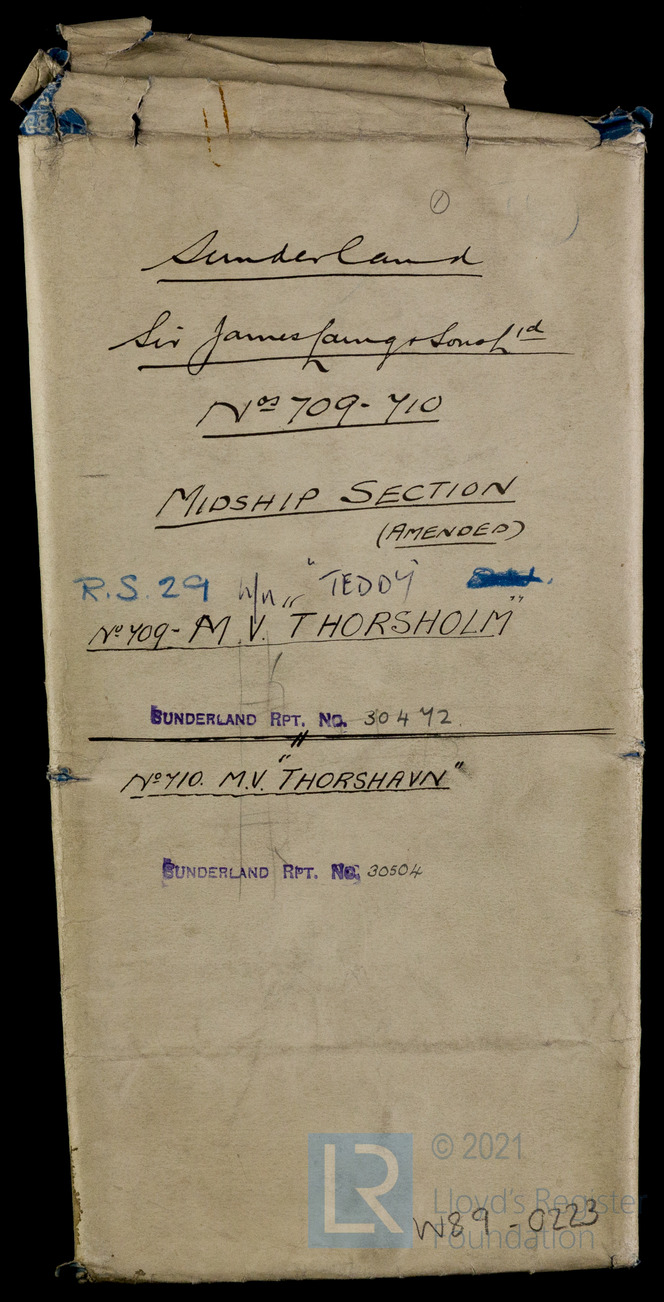 1
Sunderland
Sir James Laing & Sons Ltd
Nos 709-710
MIDSHIP SECTION
(AMENDED)
R.S. 29 h/n "TEDDY"
No 709- M.V. "THORSHOLM"
SUNDERLAND RPT. NO. 30472.
No 710. M.V. "THORSHAVN"
SUNDERLAND RPT. NO. 30504
LR © 2021
Lloyd's Register
Foundation
W89-0223